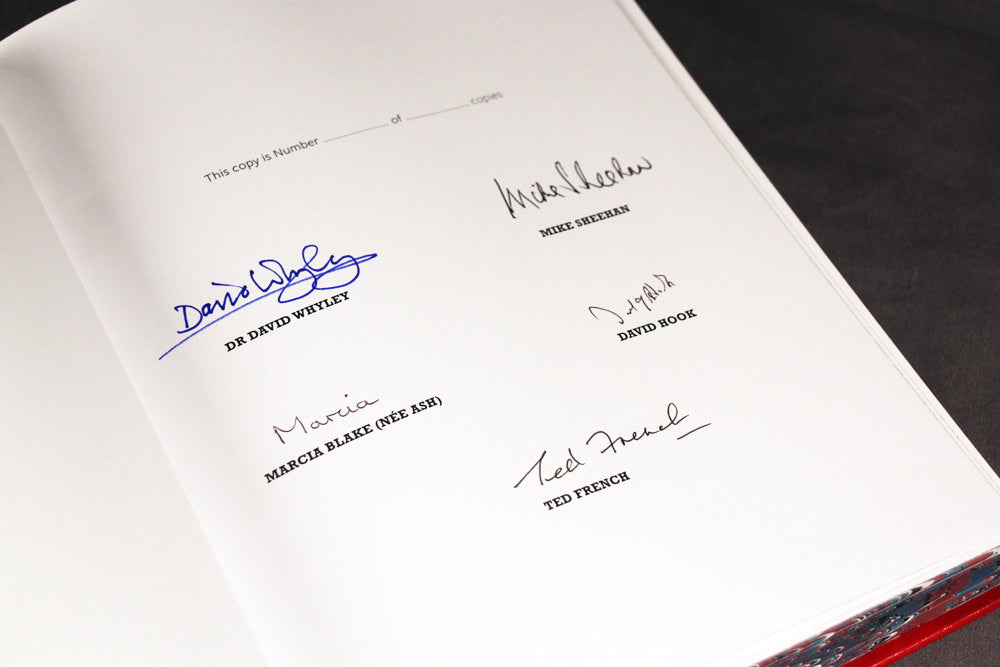 This copy is Number ........................ of ........................ copies
Mike Sheehan
MIKE SHEEHAN
David Whyley
DR DAVID WHYLEY
DAVID HOOK
Marcia
MARCIA BLAKE (NÉE ASH)
Ted French
TED FRENCH